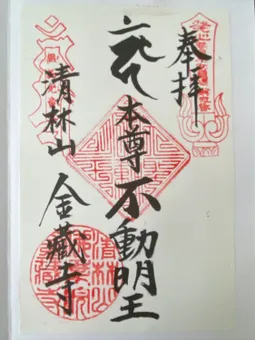 奉拝
本尊 不動明王
清林山 金藏寺